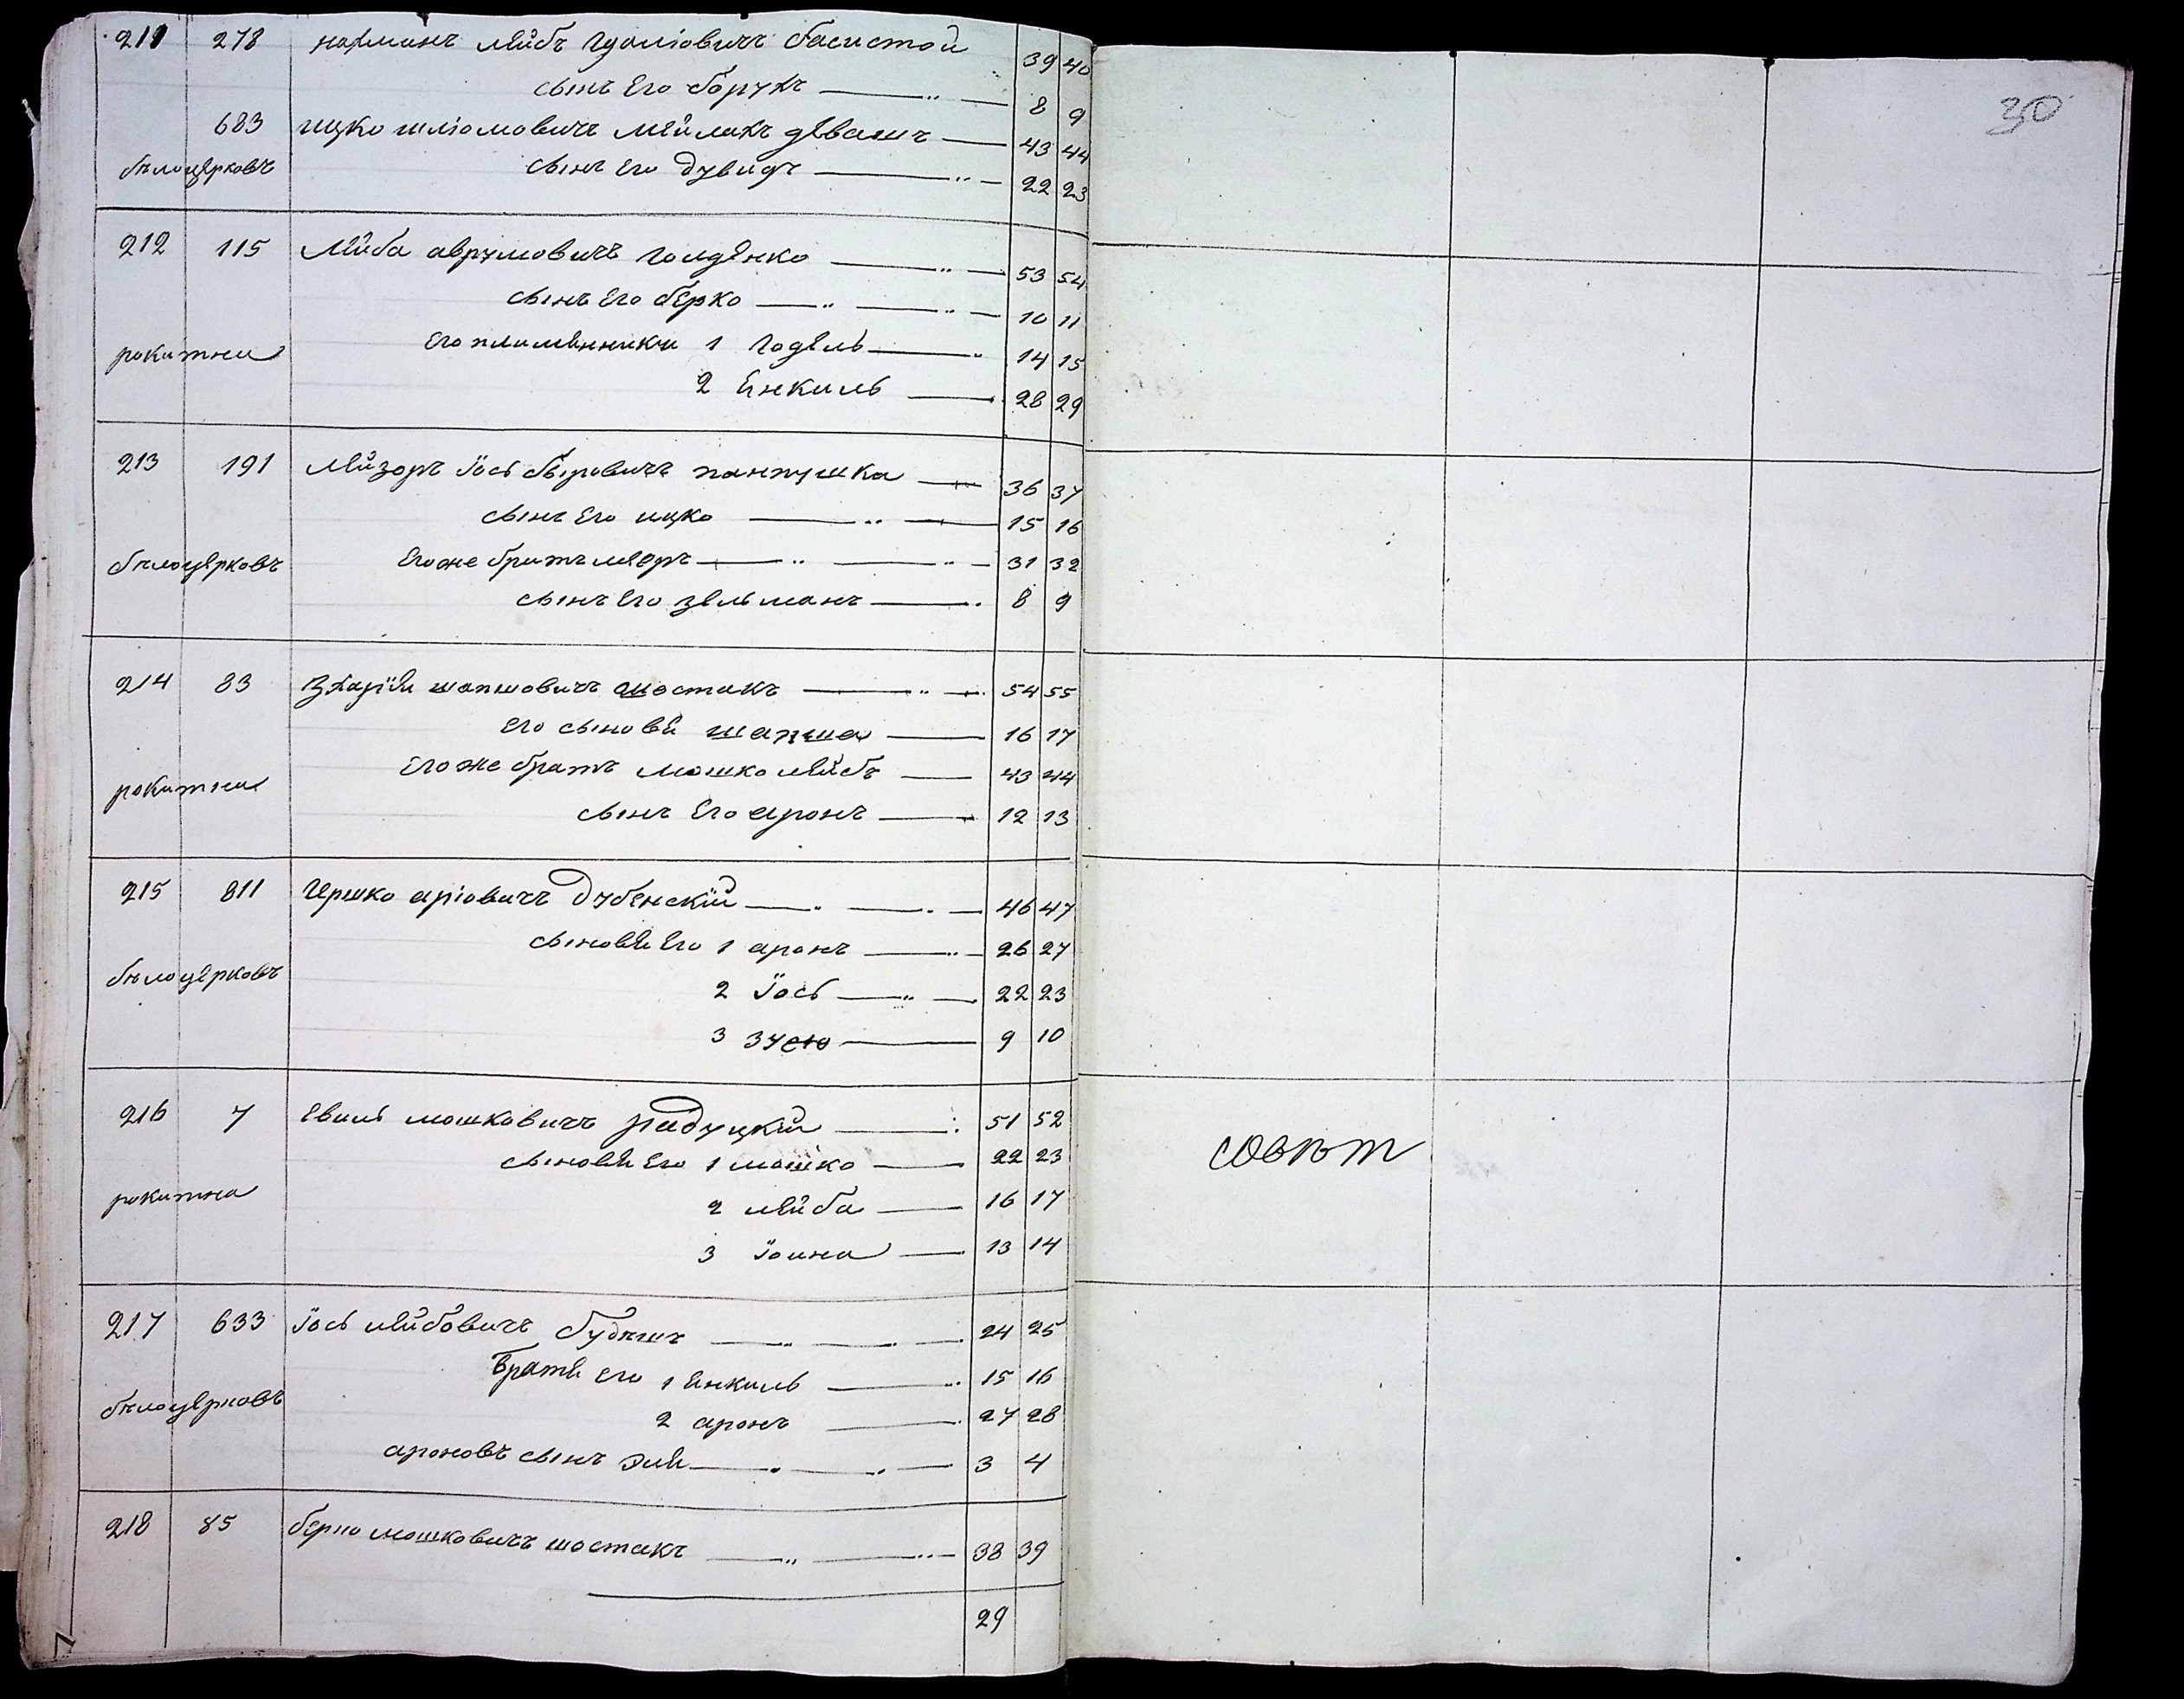 211 278 нахманъ лейбъ гдаліовичъ басистой 39 40
сынъ Его борухъ 8 9
683 ицко шліомовичъ мейлахъ девашъ 43 44
бѣлоцерковъ сынъ Его дувидъ 22 23
212 115 Лейба аврумовичъ голденко 53 54
сынъ Его берко 10 11
рокитна Его племенники 1 годель 14 15
2 Енкиль 28 29
213 191 Лейзоръ Іось беровичъ пампушка 36 37
сынъ Его ицко 15 16
бѣлоцерковъ Его же братъ мееръ 31 32
сынъ Его зельманъ 8 9
214 83 Зхарій шапшовичъ шостакъ 54 55
Его сыновя шапша 16 17
рокитна Его же братъ мошко лейбъ 43 44
сынъ Его аронъ 12 13
215 811 Гершко аріовичъ дубенскій 46 47
сыновя Его 1 аронъ 26 27
бѣлоцерковъ 2 Іось 22 23
3 зусю 9 10
216 7 Евиль мошковичъ 51 52
сыновя Его 1 мошко 22 23
совѣт
рокитна 2 лейба 16 17
3 Іоина 13 14
217 633 Іось лейбовичъ 24 25
братя его 1 Енкиль 15 16
бѣлоцерковъ 2 аронъ 27 28
ароновъ сынъ эля 3 4
218 85 берко мошковичъ шостакъ 38 39
29
30